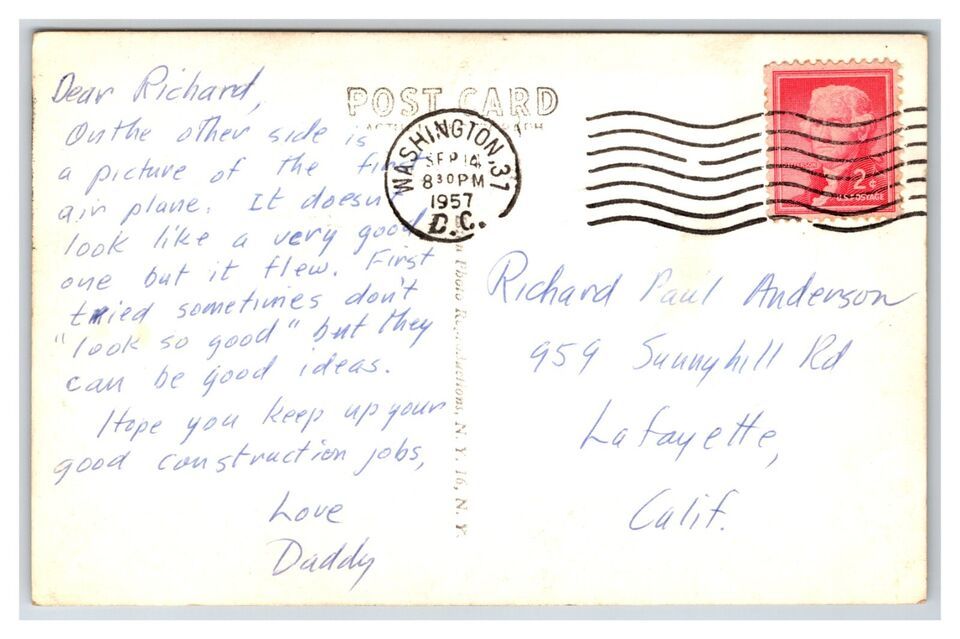 Dear Richard,
On the other side is
a picture of the first
air plane. It doesn't
look like a very good
one but it flew. First
tried sometimes don't
"look so good" but they
can be good ideas.
Hope you keep up your
good construction jobs,
Love
Daddy
POST CARD
WASHINGTON, 37
SEP 14
8 30 PM
1957
D.C.
Photo Reproductions, N. Y. 16, N. Y.
2¢
U.S. POSTAGE
Richard Paul Anderson
959 Sunnyhill Rd
Lafayette,
Calif.